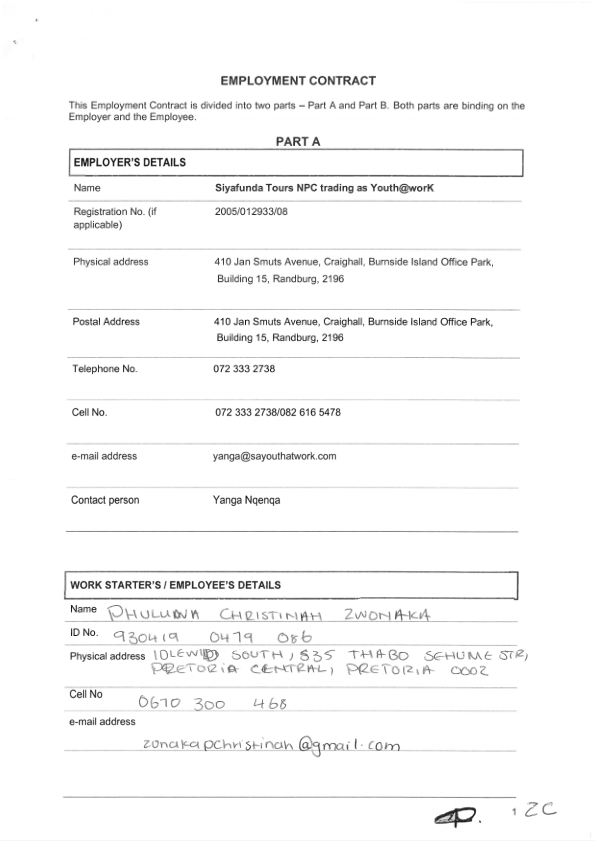 EMPLOYMENT CONTRACT
This Employment Contract is divided into two parts – Part A and Part B. Both parts are binding on the
Employer and the Employee.
PART A
EMPLOYER'S DETAILS
Name Siyafunda Tours NPC trading as Youth@worK
Registration No. (if 2005/012933/08
applicable)
Physical address 410 Jan Smuts Avenue, Craighall, Burnside Island Office Park,
Building 15, Randburg, 2196
Postal Address 410 Jan Smuts Avenue, Craighall, Burnside Island Office Park,
Building 15, Randburg, 2196
Telephone No. 072 333 2738
Cell No. 072 333 2738/082 616 5478
e-mail address yanga@sayouthatwork.com
Contact person Yanga Nqenqa
WORK STARTER'S / EMPLOYEE'S DETAILS
Name CHRISTINAH ZWONAKA
ID No. 930419 0479 086
Physical address SOUTH, 535 THABO SEHUME STR,
PRETORIA CENTRAL, PRETORIA 0002
Cell No 0670 300 468
e-mail address
zonakapchristinah@gmail.com
1 ZC